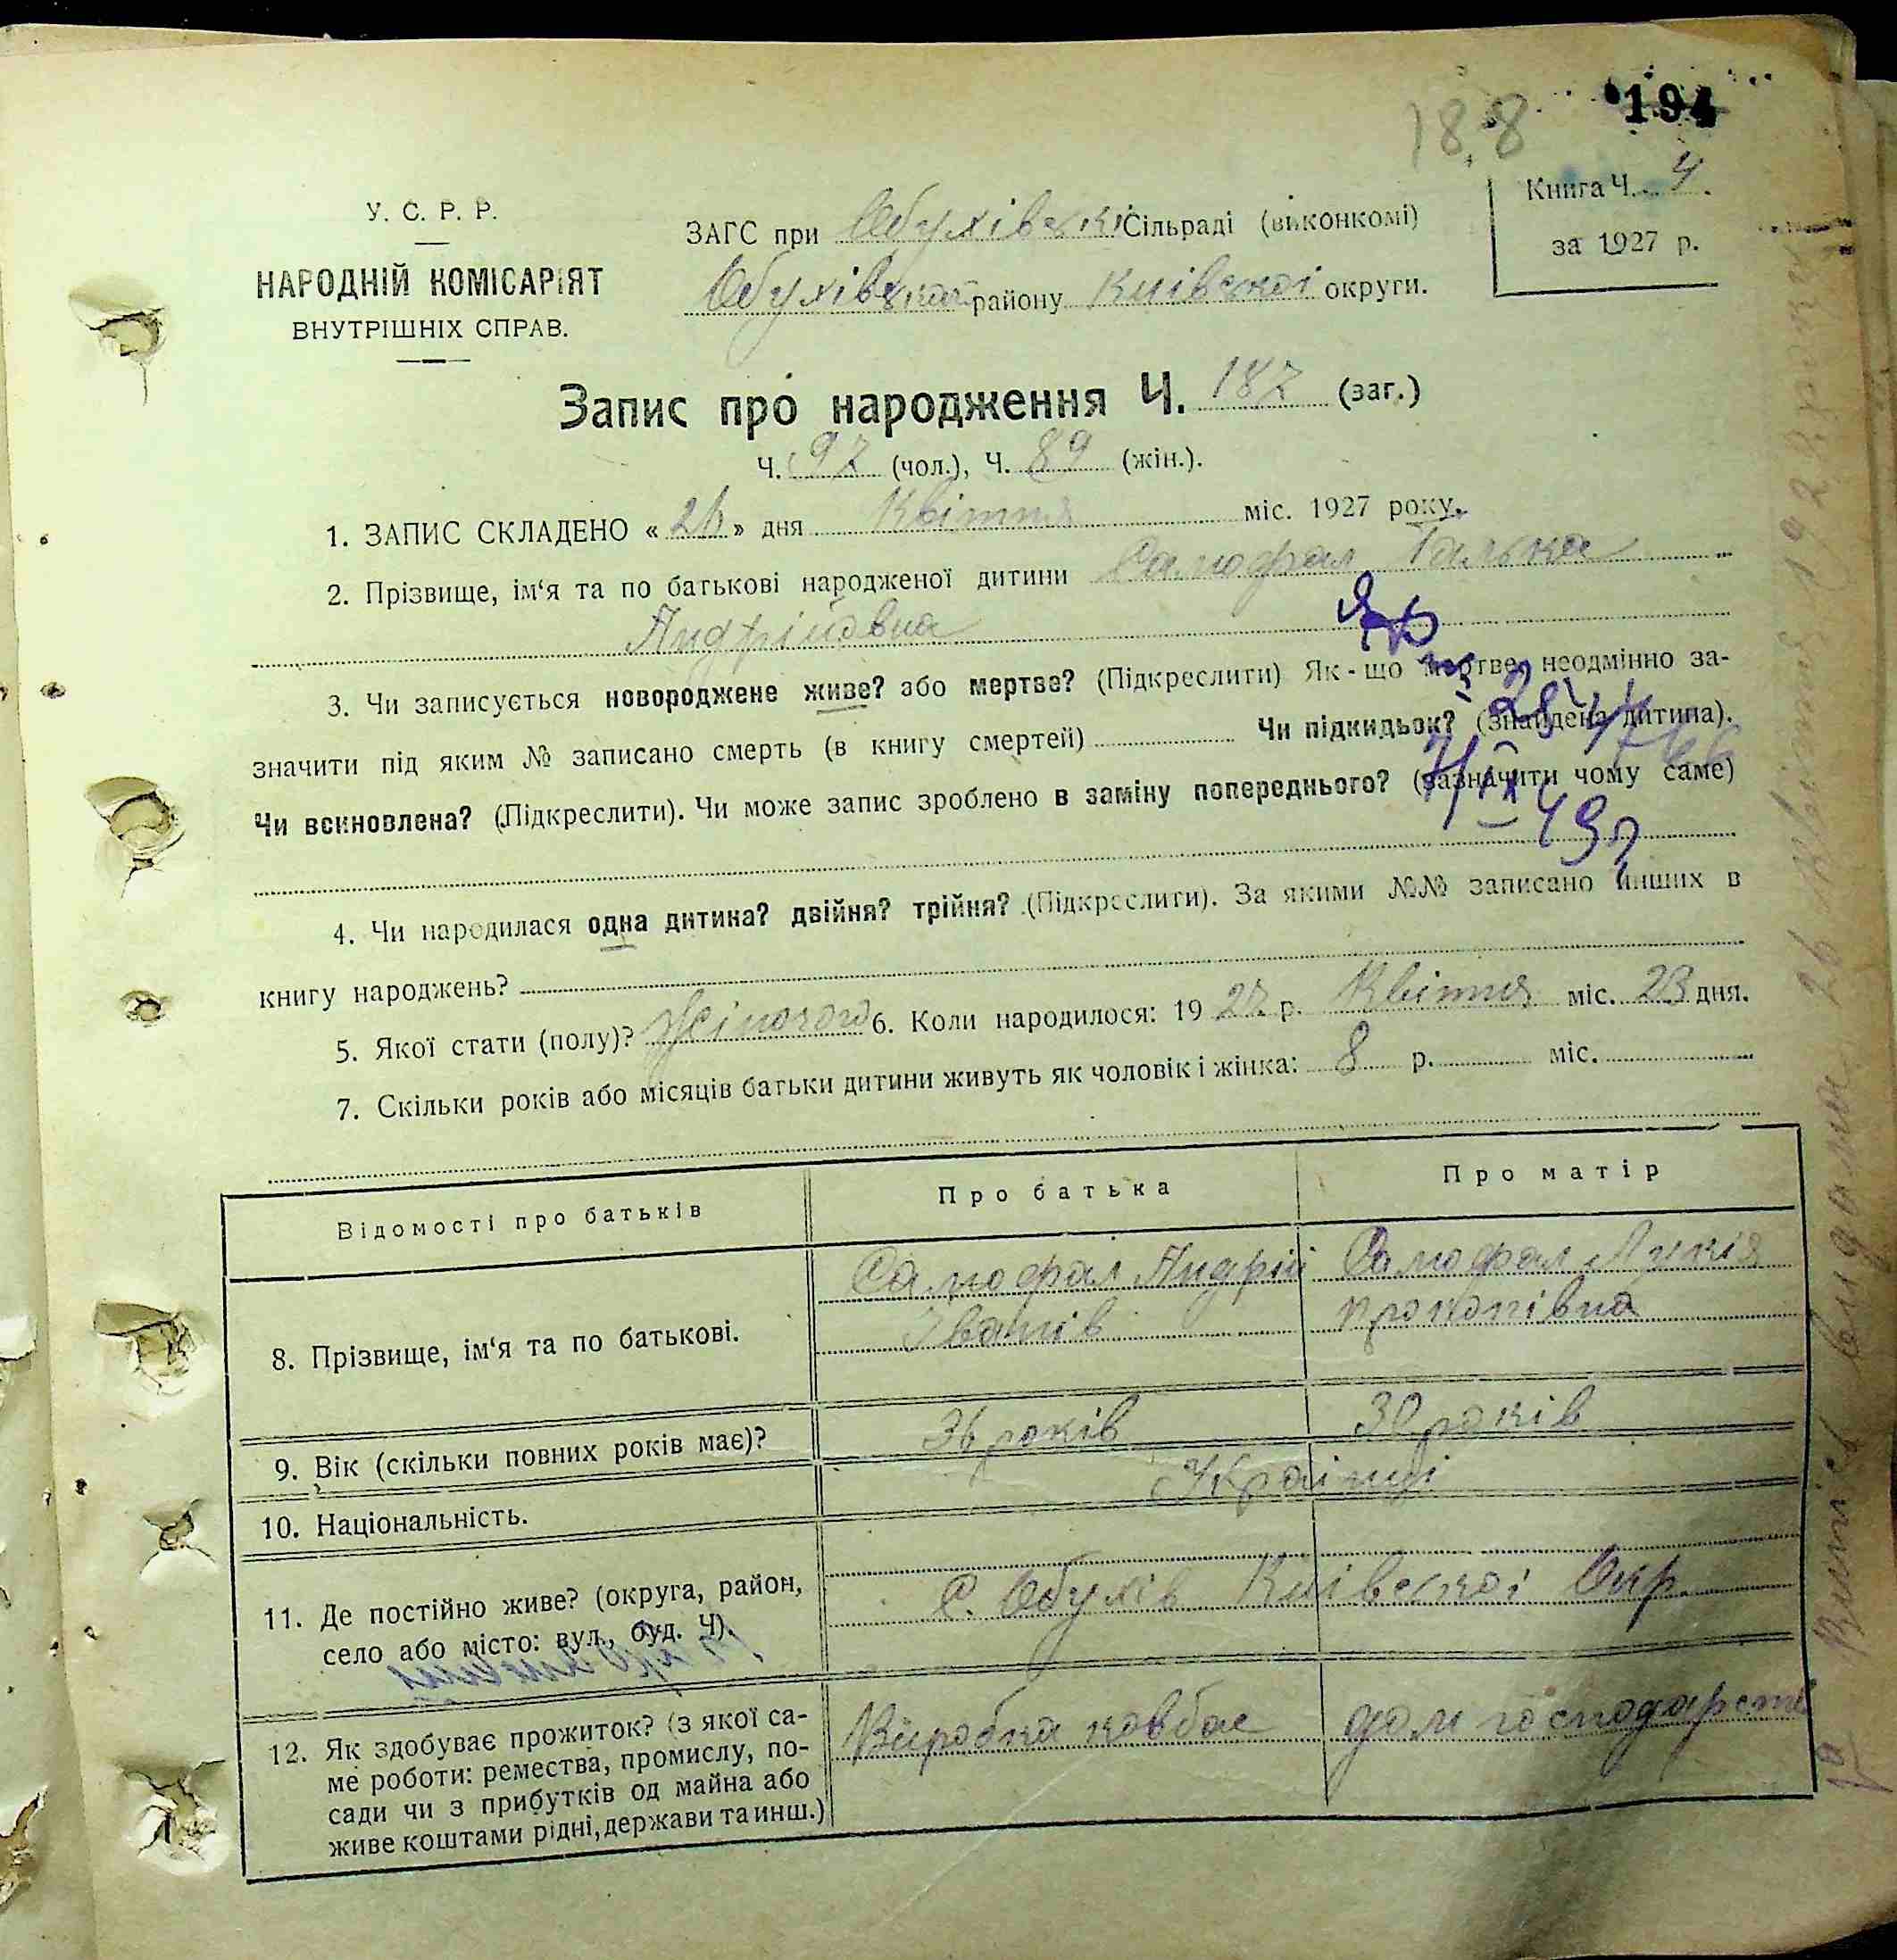 188 194
Книга Ч. 4.
за 1927 р.
У. С. Р. Р.
НАРОДНІЙ КОМІСАРІЯТ
ВНУТРІШНІХ СПРАВ.
ЗАГС при Обухівські Сільраді (виконкомі)
Обухівськ району Київської округи.
Запис про народження Ч. 187 (заг.)
Ч. 97 (чол.), Ч. 89 (жін.).
1. ЗАПИС СКЛАДЕНО « 26 » дня Квітня міс. 1927 року.
2. Прізвище, ім‘я та по батькові народженої дитини Самофал Галька
Андрійовна
3. Чи записується новороджене живе? або мертве? (Підкреслити) Як - що мертве, неодмінно за-
значити під яким № записано смерть (в книгу смертей) Чи підкидьок? (знайдена дитина).
Чи всиновлена? (Підкреслити). Чи може запис зроблено в заміну попереднього? (зазначити чому саме)
4. Чи народилася одна дитина? двійня? трійня? (Підкреслити). За якими №№ записано инших в
книгу народжень?
5. Якої стати (полу)? Жіночого 6. Коли народилося: 19 27 р. Квітня міс. 23 дня.
7. Скільки років або місяців батьки дитини живуть як чоловік і жінка: 8 р. міс.
Відомості про батьків Про батька Про матір
8. Прізвище, ім‘я та по батькові. Самофал Андрій Самофал Лукія
Іванів Прокопівна
9. Вік (скільки повних років має)? 36 років 30 років
10. Національність. Українці
11. Де постійно живе? (округа, район,
село або місто: вул., буд. Ч). С. Обухів Київської Окр.
12. Як здобуває прожиток? (з якої са-
ме роботи: ремества, промислу, по-
сади чи з прибутків од майна або
живе коштами рідні, держави та инш.)
Виробка ковбас дом господарств
Витяг видано 26 квітня 192